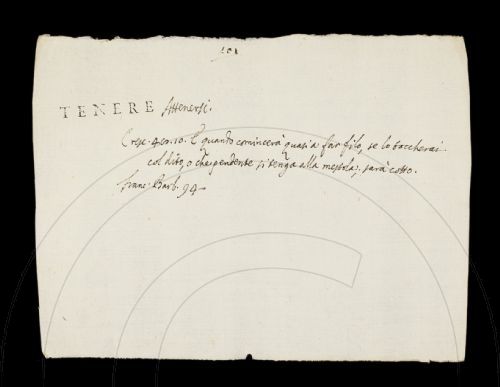 TENERE Attenersi.
Cresc. 4. co. 10. E quando comincerà quasi a far filo, se lo toccherai
col dito, o che pendente si tenga alla mestola, sarà cotto.
Franc. Barb. 94